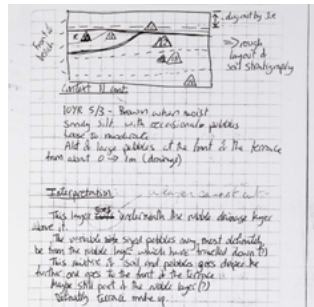 dug out by J.e
front of trench
=> rough layout of soil stratigraphy
Context N cont.
10YR 5/3 - Brown when moist
Sandy silt with occasional pebbles
Loose to moderate
Alot of large pebbles at the front of the terrace
from about 0 -> 1m (drainage)
Interpretation
This layer goes underneath the rubble drainage layer
above it.
The variable sized pebbles may most definitely
be from the rubble layer which have travelled down (?)
This mixture of soil and pebbles goes deeper the
further one goes to the front of the terrace.
Maybe still part of the rubble layer (?)
Definitely terrace make up.